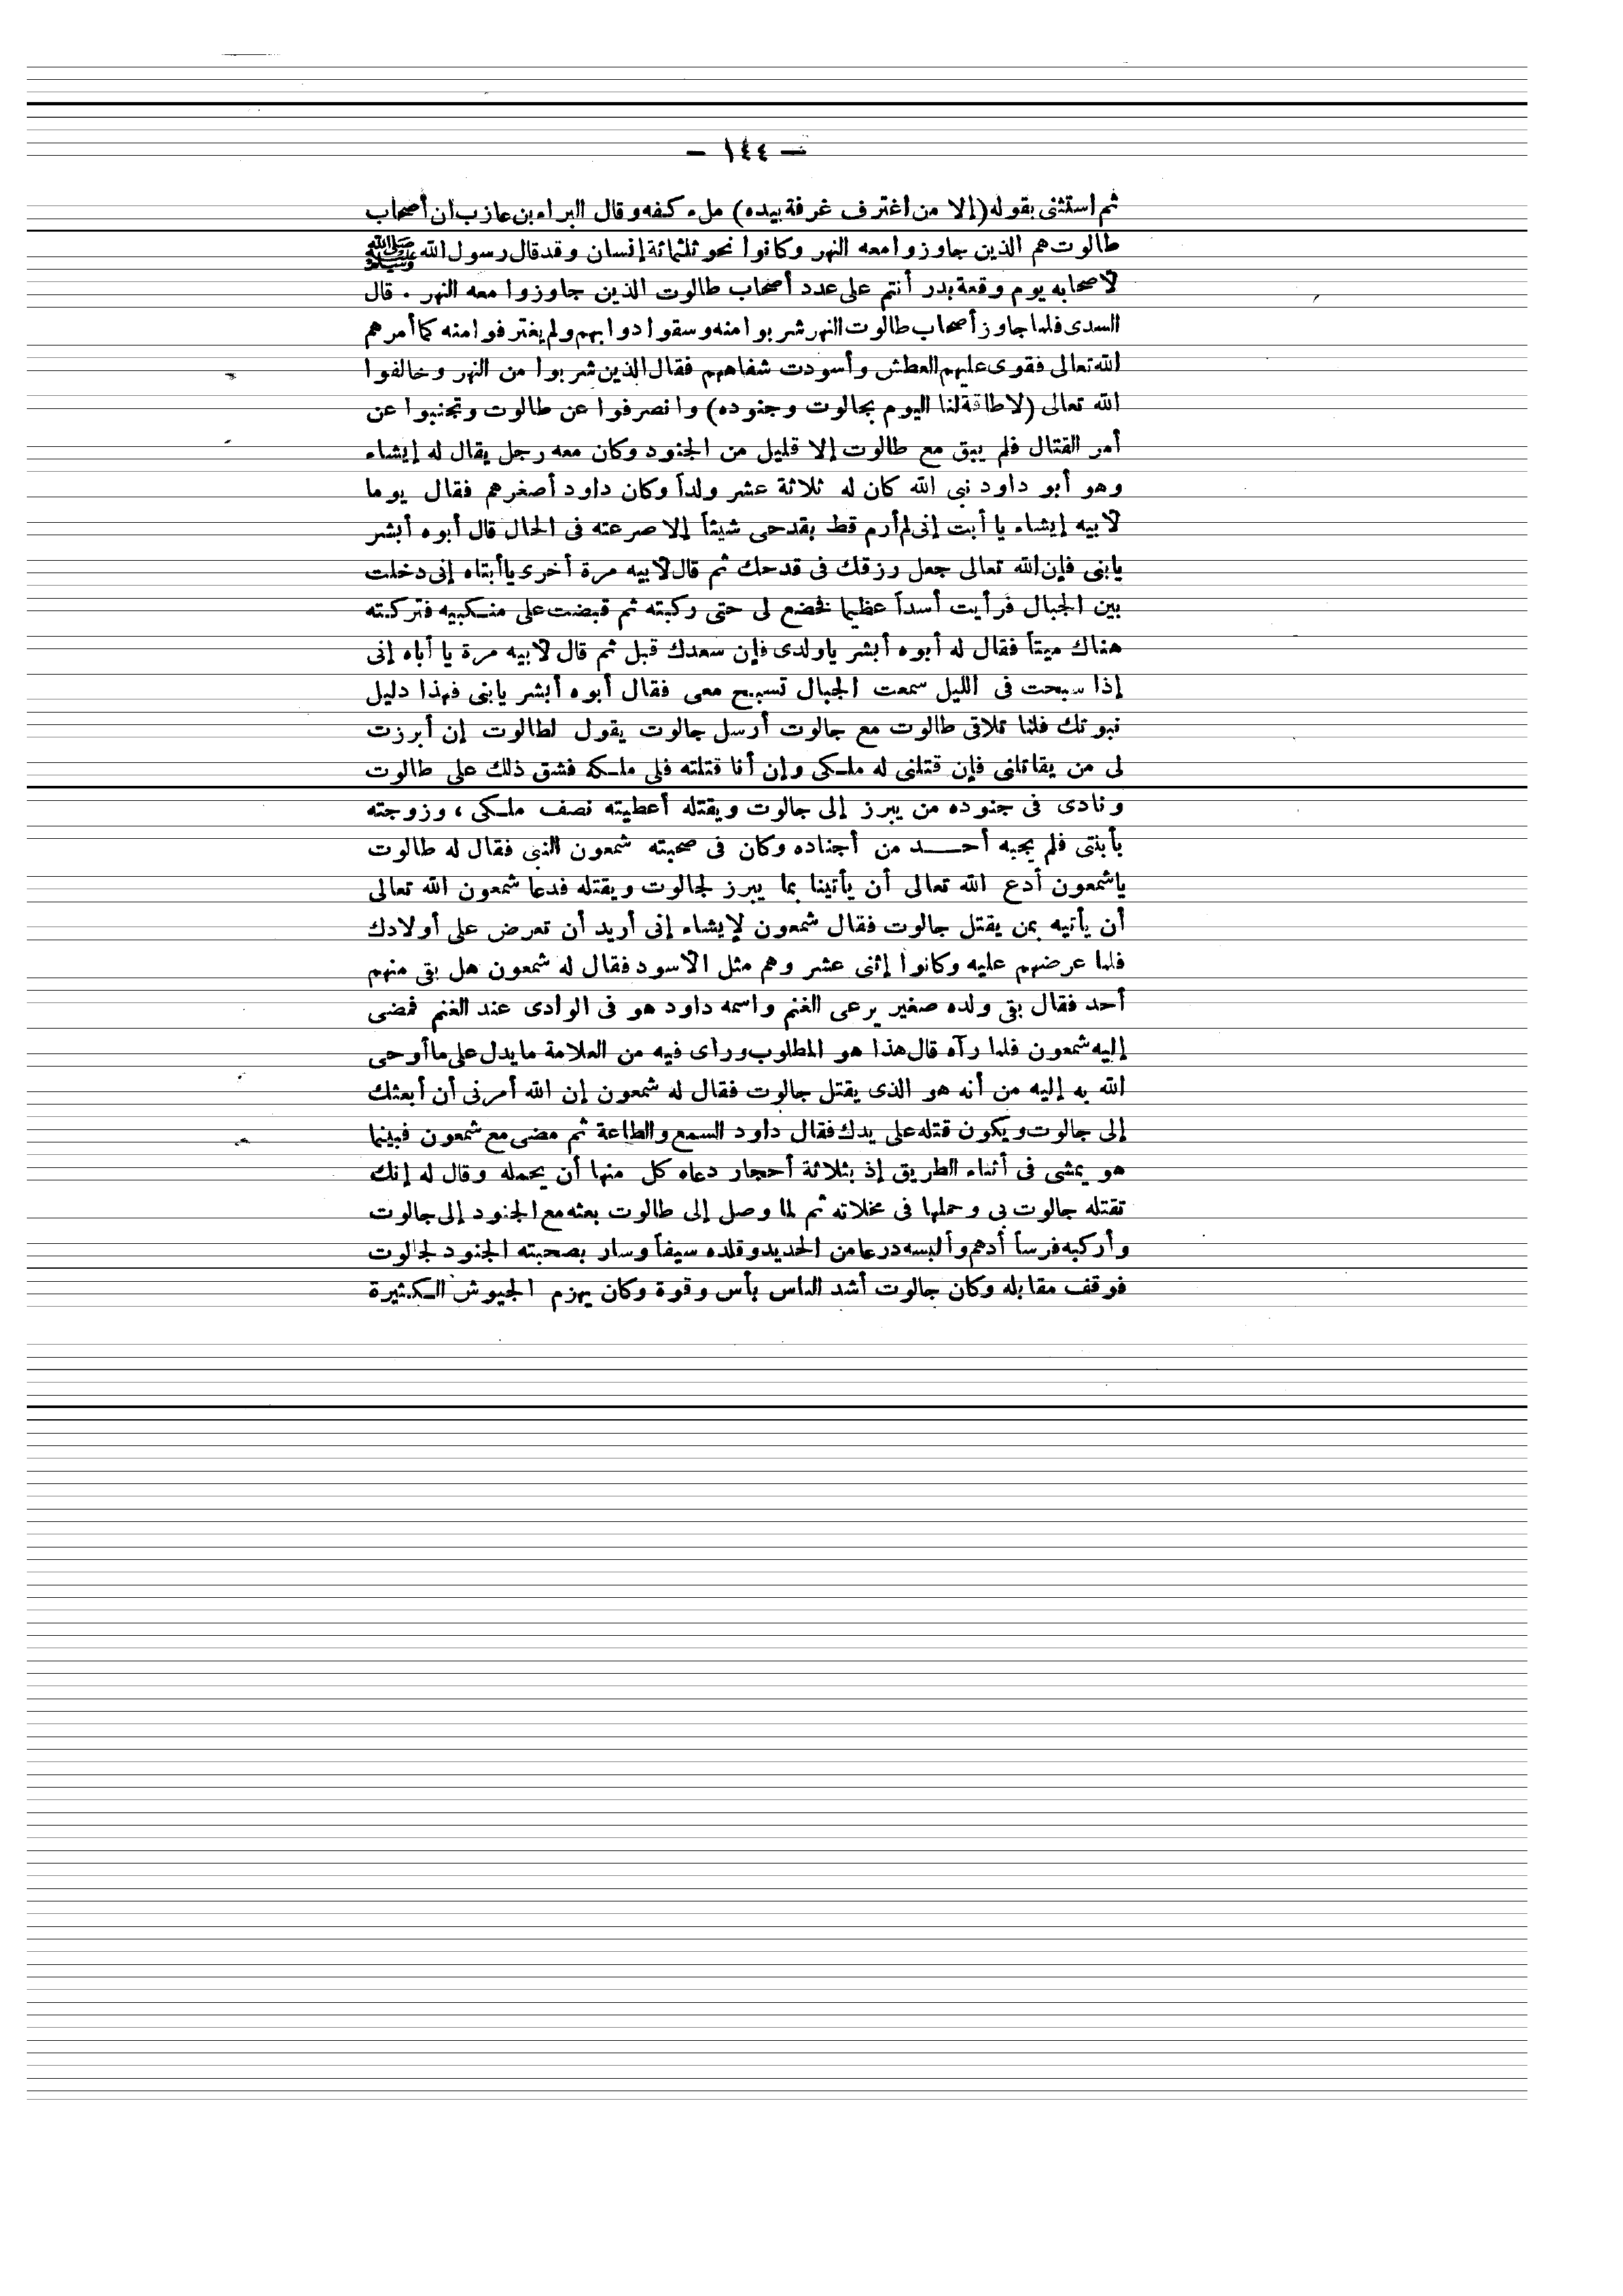 — ١٤٤ —
ثم استثنى بقوله (إلا من اغترف غرفة بيده) ملء كفه وقال البراء بن عازب ان أصحاب
طالوت هم الذين جاوزوا معه النهر وكانوا نحو ثلثمائة إنسان وقد قال رسول الله ﷺ
لاصحابه يوم وقعة بدر أنتم على عدد أصحاب طالوت الذين جاوزوا معه النهر . قال
السدى فلما جاوز أصحاب طالوت النهر شربوا منه وسقوا دوابهم ولم يغترفوا منه كما أمرهم
الله تعالى فقوى عليهم العطش وأسودت شفاههم فقال الذين شربوا من النهر وخالفوا
الله تعالى (لا طاقة لنا اليوم بجالوت وجنوده) وانصرفوا عن طالوت وتجنبوا عن
أمر القتال فلم يبق مع طالوت إلا قليل من الجنود وكان معه رجل يقال له إيشاء
وهو أبو داود نبى الله كان له ثلاثة عشر ولداً وكان داود أصغرهم فقال يوما
لابيه إيشاء يا أبت إنى لم أرم قط بقدحى شيئاً إلا صرعته فى الحال قال أبوه أبشر
يابنى فإن الله تعالى جعل رزقك فى قدحك ثم قال لابيه مرة أخرى ياأبتاه إنى دخلت
بين الجبال فرأيت أسداً عظيما فخضع لى حتى ركبته ثم قبضت على منكبيه فتركته
هناك ميتاً فقال له أبوه أبشر ياولدى فإن سعدك قبل ثم قال لابيه مرة يا أباه إنى
إذا سبحت فى الليل سمعت الجبال تسبح معى فقال أبوه أبشر يابنى فهذا دليل
نبوتك فلما تلاقى طالوت مع جالوت أرسل جالوت يقول لطالوت إن أبرزت
لى من يقاتلنى فإن قتلنى له ملكى وإن أنا قتلته فلى ملكه فشق ذلك على طالوت
ونادى فى جنوده من يبرز إلى جالوت ويقتله أعطيته نصف ملكى ، وزوجته
بأبنتى فلم يجبه أحد من أجناده وكان فى صحبته شمعون النبى فقال له طالوت
ياشمعون أدع الله تعالى أن يأتينا بما يبرز لجالوت ويقتله فدعا شمعون الله تعالى
أن يأتيه بمن يقتل جالوت فقال شمعون لإيشاء إنى أريد أن تعرض على أولادك
فلما عرضهم عليه وكانوا إثنى عشر وهم مثل الاسود فقال له شمعون هل بقى منهم
أحد فقال بقى ولده صغير يرعى الغنم واسمه داود هو فى الوادى عند الغنم فمضى
إليه شمعون فلما رآه قال هذا هو المطلوب ورأى فيه من العلامة مايدل على ماأوحى
الله به إليه من أنه هو الذى يقتل جالوت فقال له شمعون إن الله أمرنى أن أبعثك
إلى جالوت ويكون قتله على يدك فقال داود السمع والطاعة ثم مضى مع شمعون فبينما
هو يمشى فى أثناء الطريق إذ بثلاثة أحجار دعاه كل منها أن يحمله وقال له إنك
تقتله جالوت بى وحملها فى مخلاته ثم لما وصل إلى طالوت بعثه مع الجنود إلى جالوت
وأركبه فرساً أدهم وألبسه درعا من الحديد وقلده سيفاً وسار بصحبته الجنود لجالوت
فوقف مقابله وكان جالوت أشد الناس بأس وقوة وكان يهزم الجيوش الكثيرة